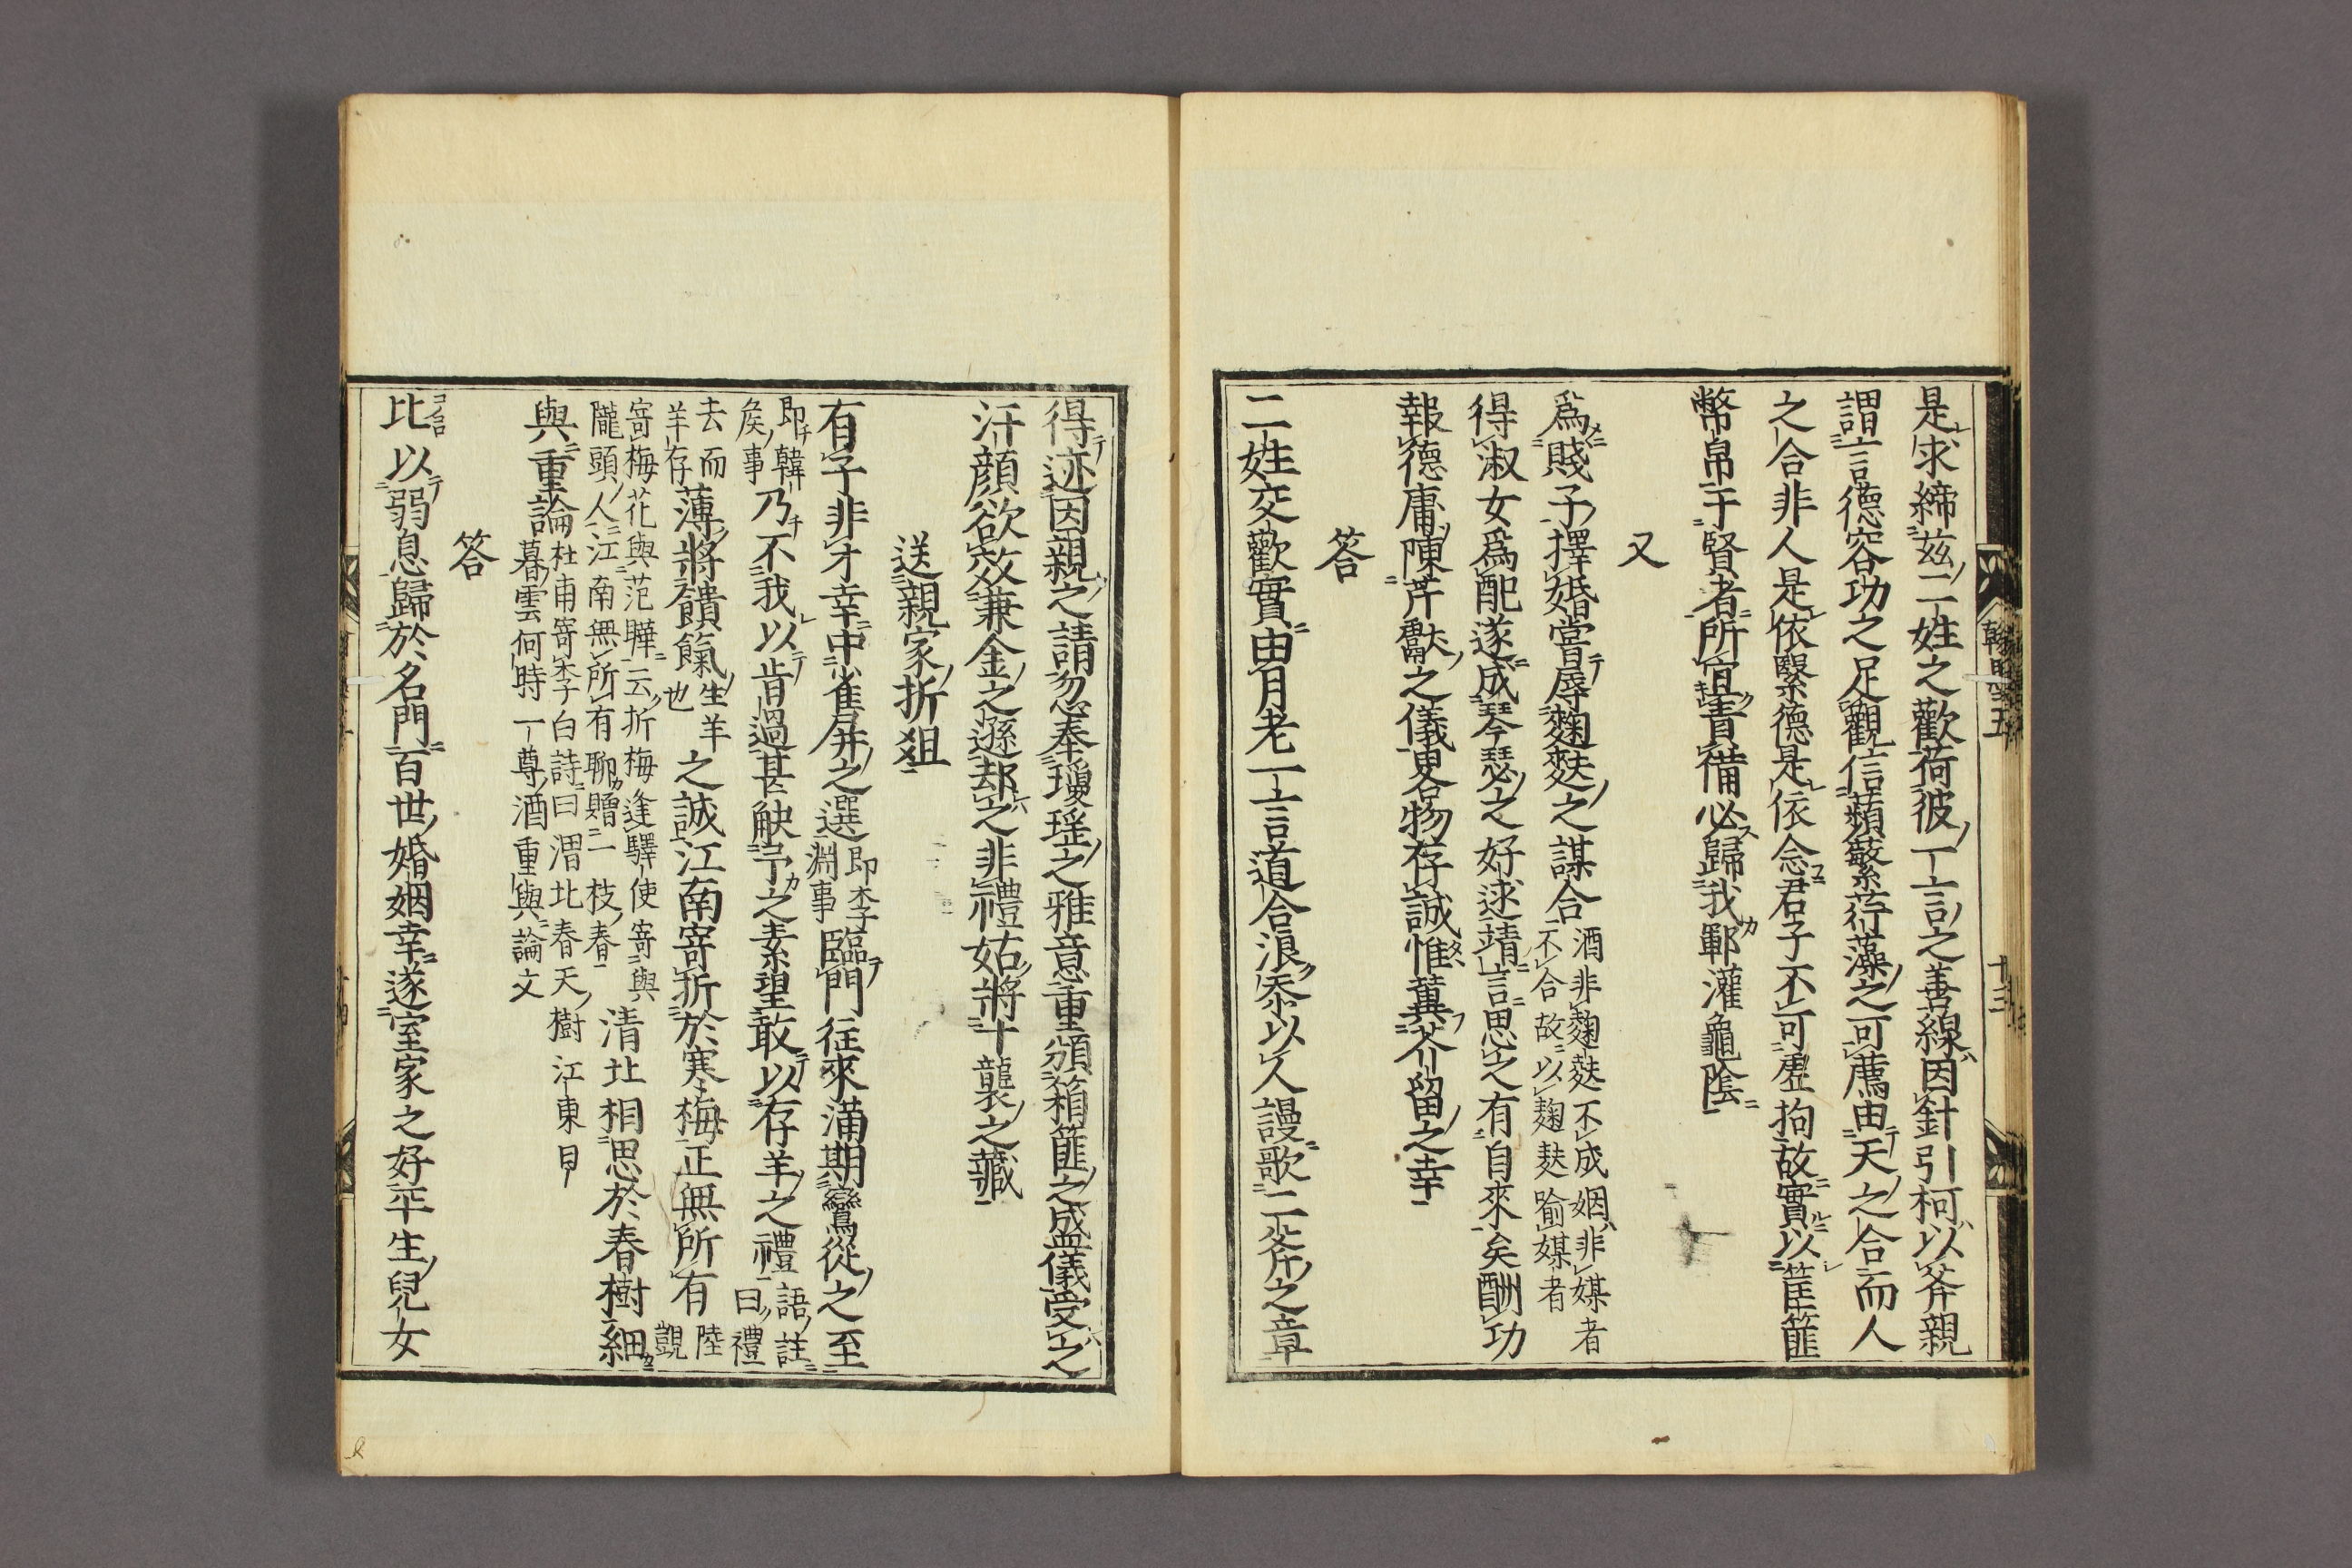 是求締茲二姓之歡荷彼一言之善線因針引柯以斧親
謂言德容功之足觀信蘋蘩荇藻之可薦由天之合而人
之合非人是依緊德是依念君子不可虛拘故實以筐篚
幣帛于賢者所宜責備必歸我鄆灌龜陰
又
為賤子擇婚嘗辱麹麩之謀合
酒非麹麩不成姻非媒者
不合故以麹麩喻媒者
得淑女為配遂成琴瑟之好逑靖言思之有自來矣酬功
報德庸陳芹獻之儀畧物存誠惟冀芥留之幸
答
二姓交歡實由月老一言道合浪忝以人謾歌二斧之章
得迹因親之請忽奉瓊瑤之雅意重頒箱篚之盛儀受之
汗顔欲效兼金之遜却之非禮姑將十襲之藏
送親家折俎
有子非才幸中雀屏之選
即李
淵事
臨門往來滿期鸞從之至
即韓
侯事
乃不我以肯過甚觖予之素望敢以存羊之禮
語註
曰禮
去而
羊存
薄將饋餼
生羊
也
之誠江南寄折於寒梅正無所有
陸
覬
寄梅花與范曄云折梅逢驛使寄與
隴頭人江南無所有聊贈一枝春
清北相思於春樹細
與重論
杜甫寄李白詩曰渭北春天樹江東日
暮雲何時一尊酒重與論文
答
比以弱息歸於名門百世婚姻幸遂室家之好平生兒女